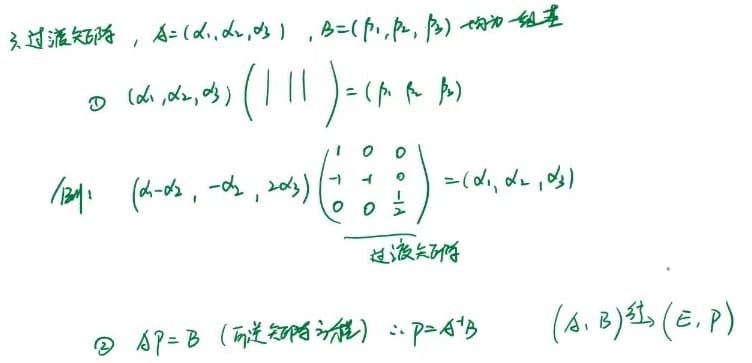 3. 过渡矩阵，A=(α₁,α₂,α₃)，B=(β₁,β₂,β₃) 均为一组基
① (α₁,α₂,α₃) ( | | | ) = (β₁ β₂ β₃)
例： (α₁-α₂, -α₂, 2α₃) ( 1 0 0 ; -1 -1 0 ; 0 0 1/2 ) = (α₁, α₂, α₃)
过渡矩阵
② AP=B (可逆矩阵方程) ∴ P=A⁻¹B (A, B) 行→ (E, P)